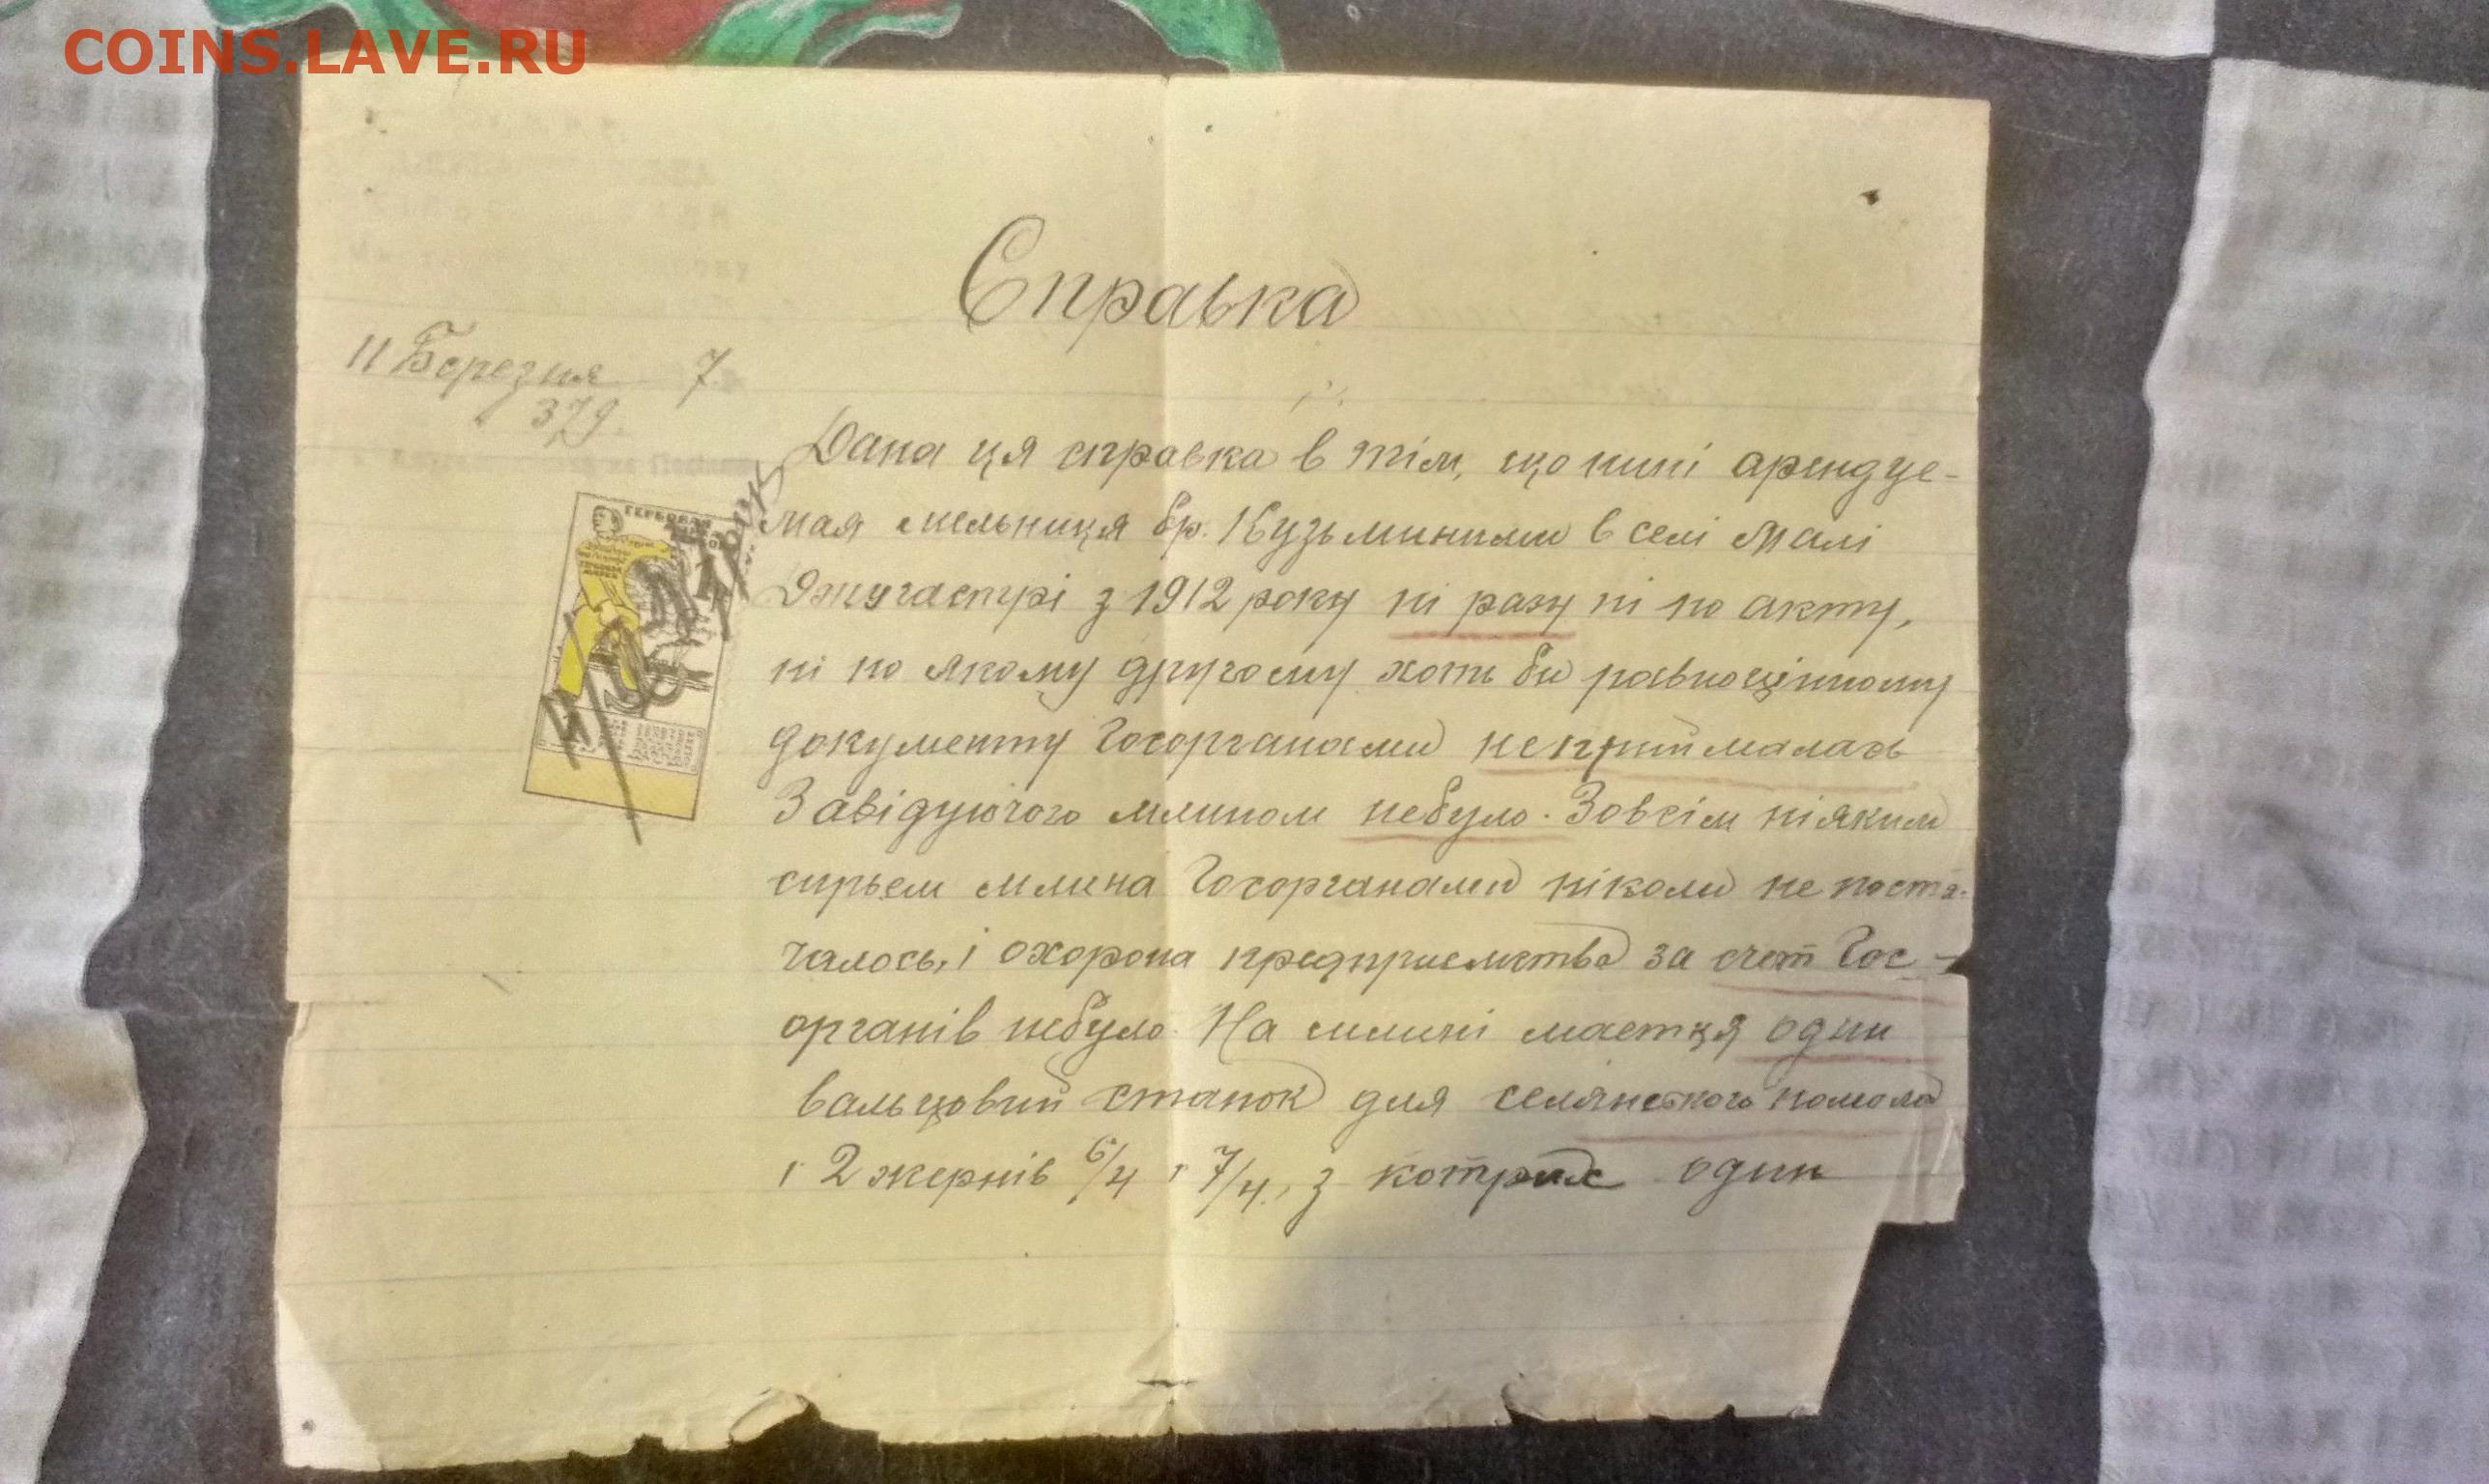 COINS.LAVE.RU
Справка
11 Березня 7
379.
Дана ця справка в тім, що нині арендуе-
мая мельниця бр. Кузьминими в селі Малі
Джугастрі з 1912 року ні разу ні по акту,
ні по якому другому хоть би равноцінному
документу Госорганами неприймалась
Завідуючого млином небуло. Зовсім ніяким
сирьем млина Госорганами ніколи не поста-
чалось, і охорона предприемства за счет Гос-
органів небуло. На млині маетця один
вальцовий станок для селянського помола
і 2 жернів 6/4 і 7/4, з котрих один
ГЕРБОВАЯ